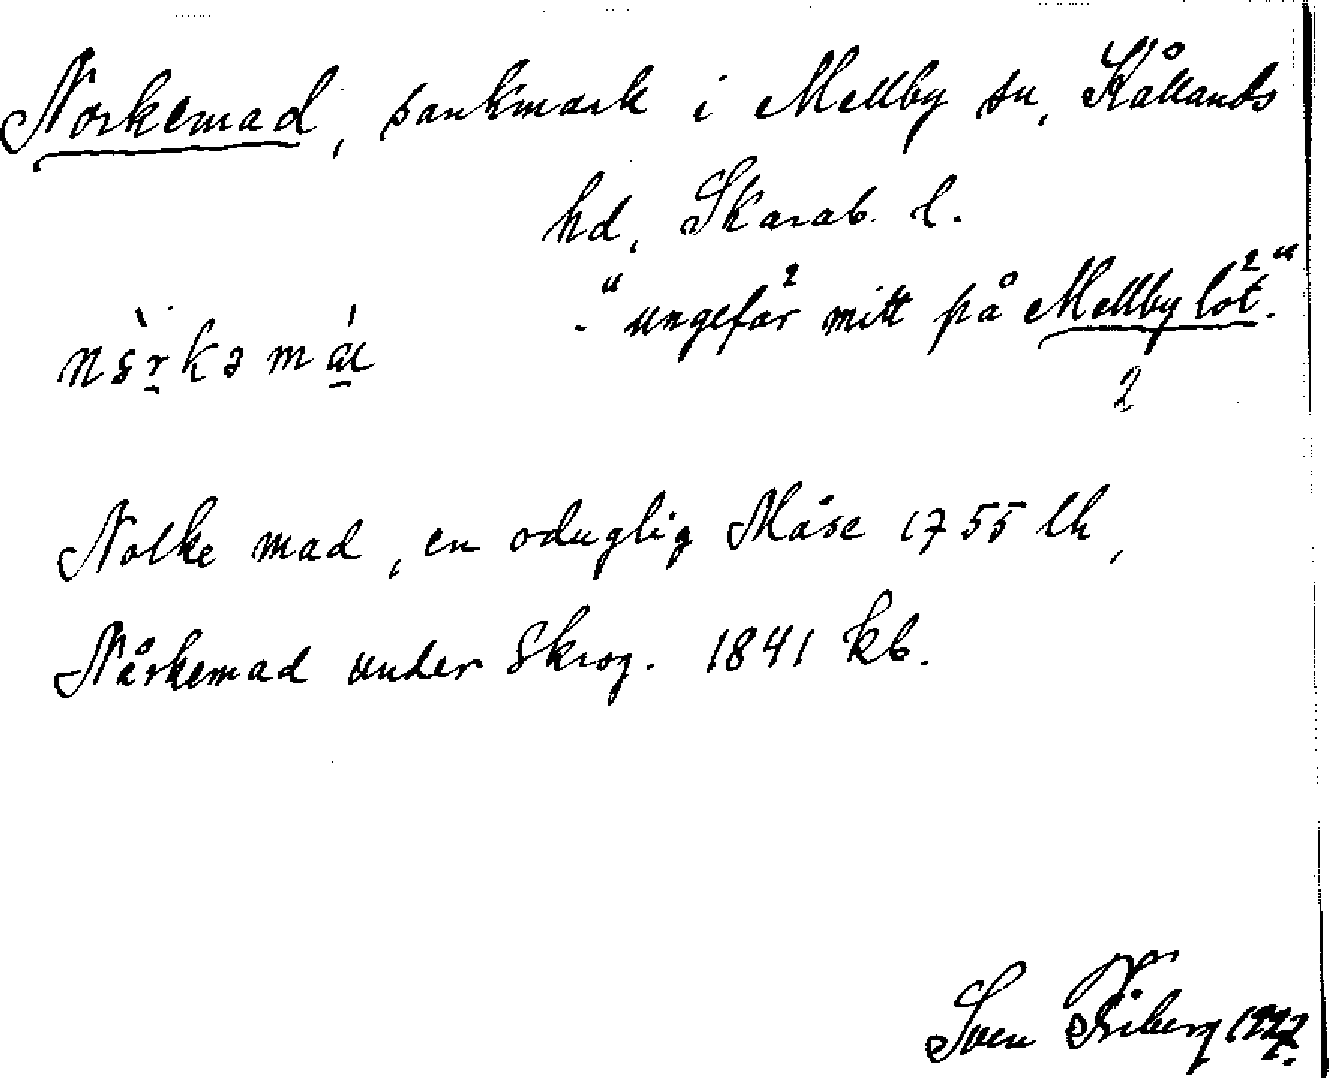 Norkemad, sankmark i Mellby sn, Kållands
hd, Skarab. l.
- "ungefär mitt på Mellby lot."
2
Nolke mad, en oduglig Måse 1755 lh,
Nårkemad under Skrog. 1841 kb.
Sven Friberg